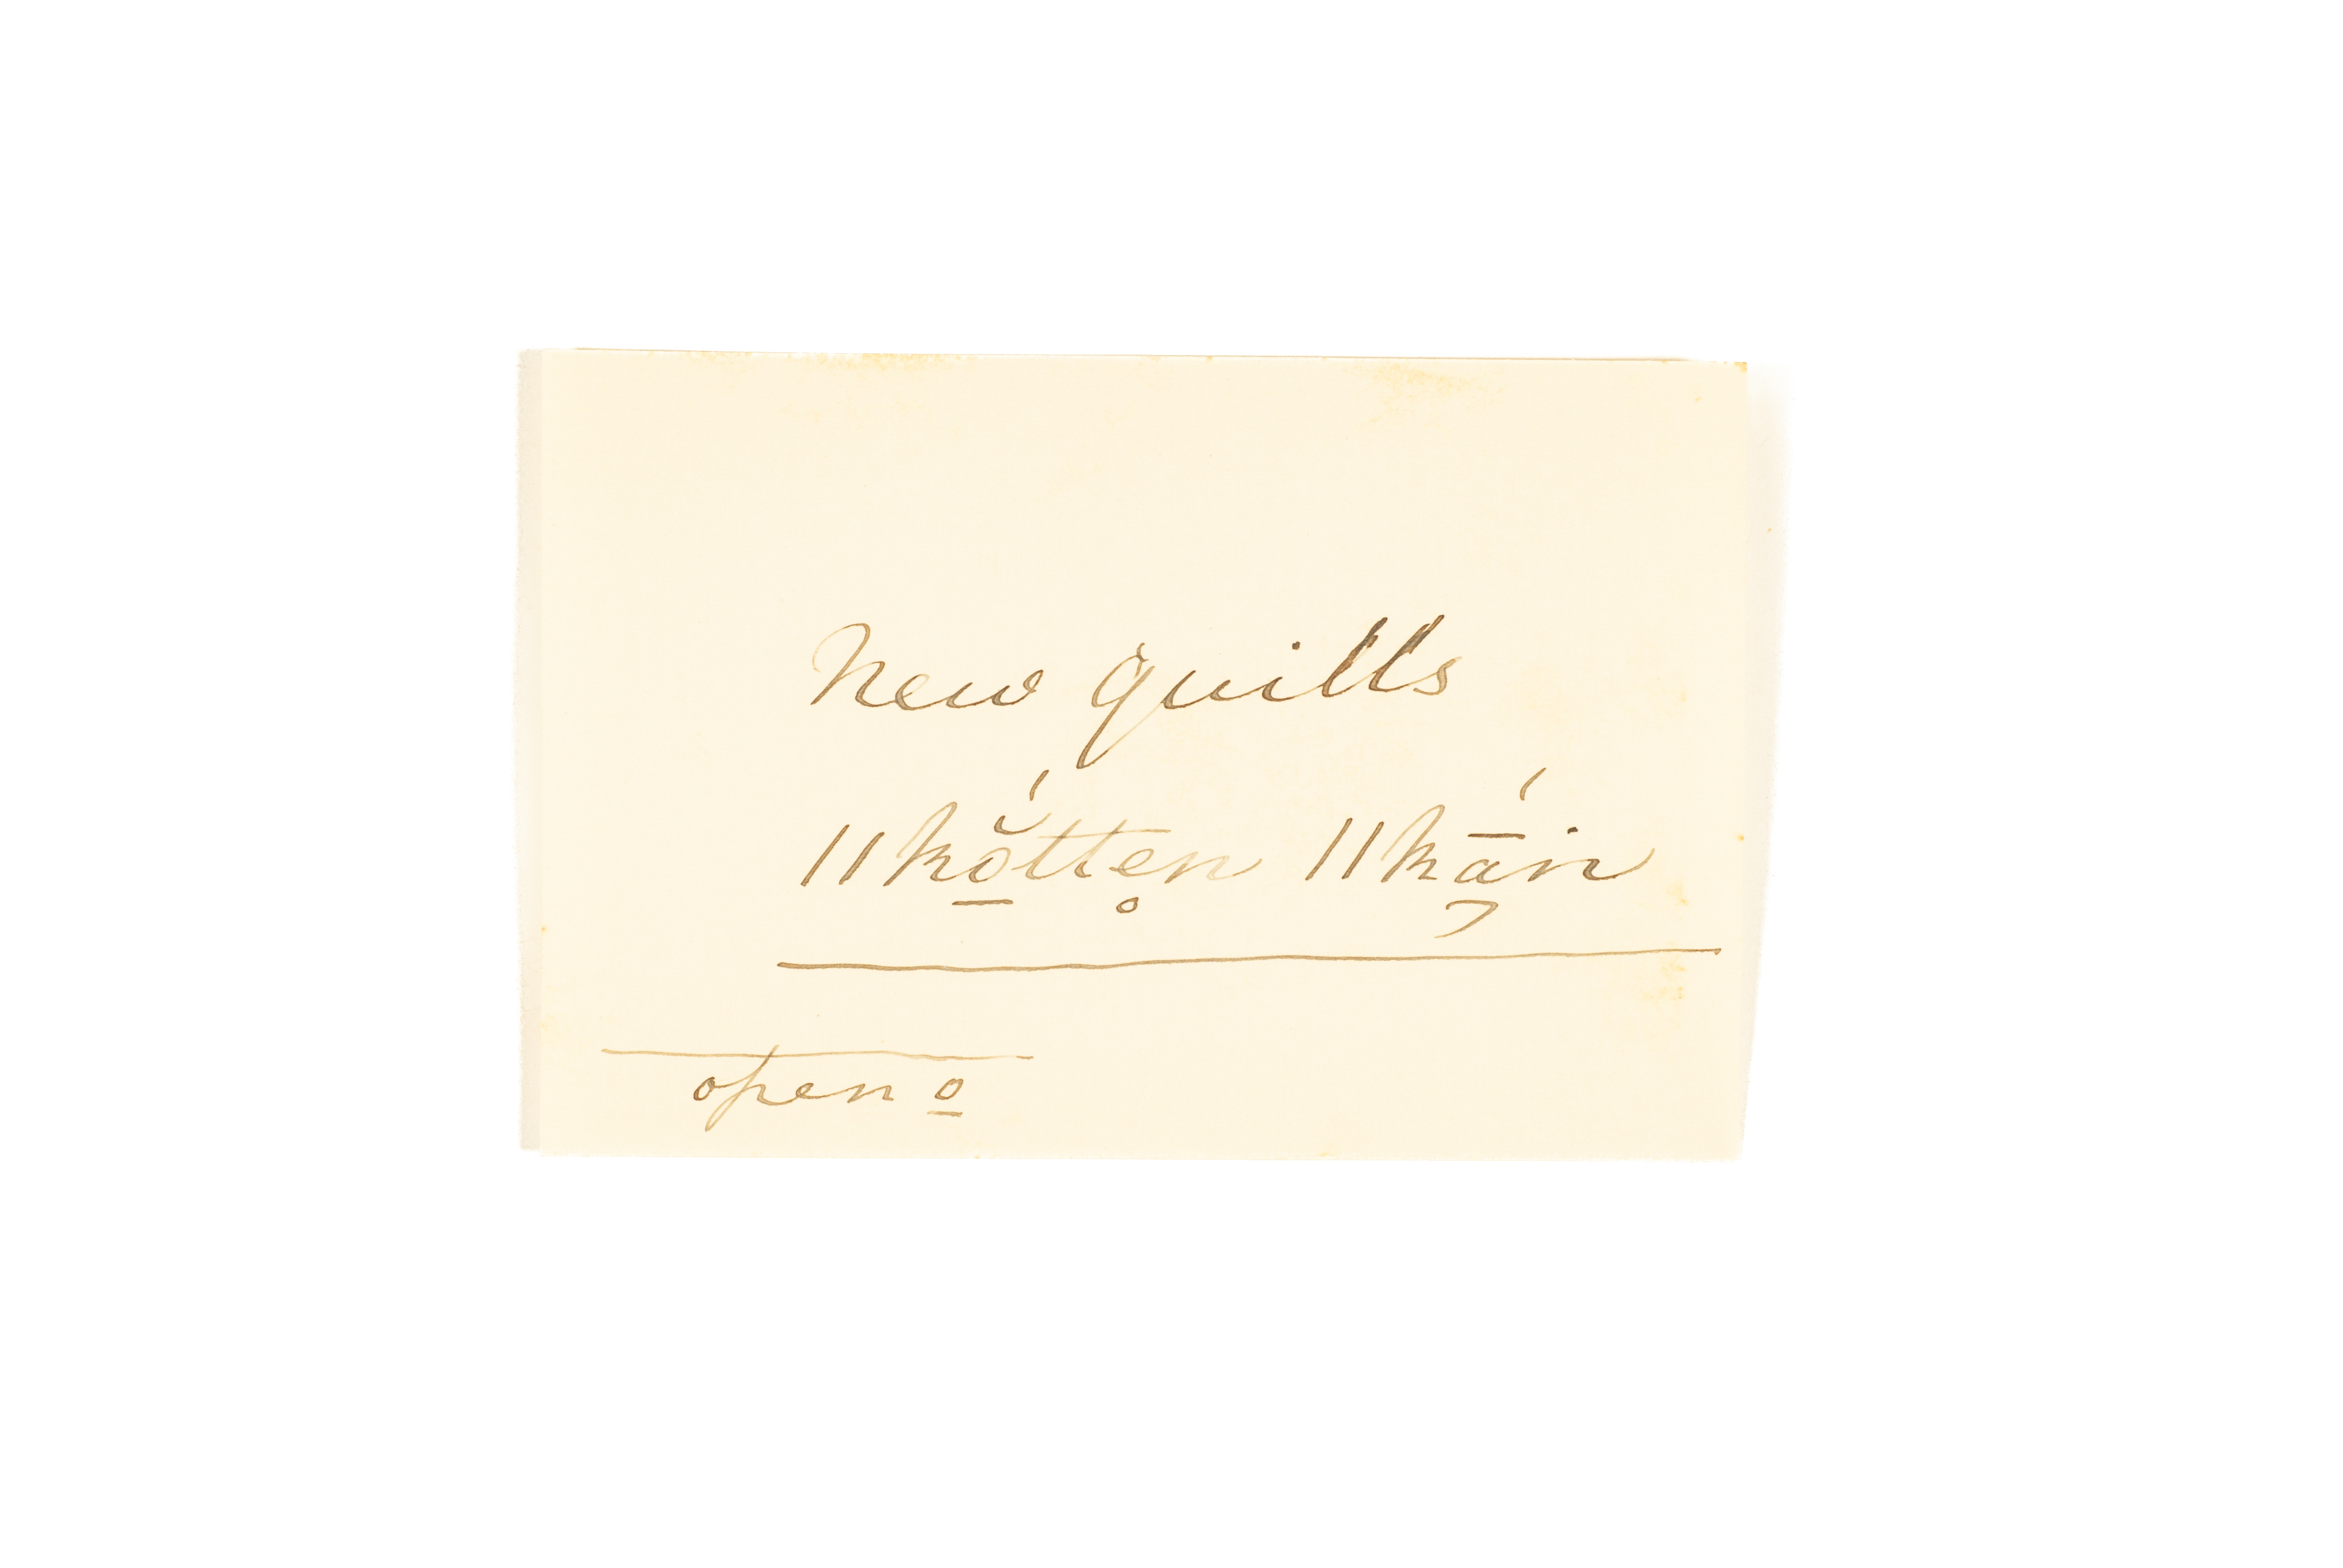 New quills
ǁkŏ̱́ttẹn ǁkā̦́in
open o̱